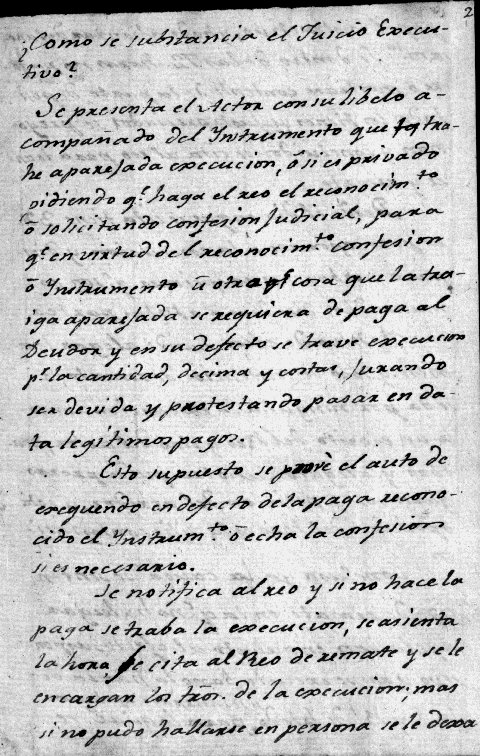 2
¿Como se substancia el Juicio Execu-
tivo?
Se presenta el Actor con su libelo a-
compañado del Instrumento que tra-
he aparejada execucion, ó si es privado
pidiendo q.e haga el reo el reconocim.to
ó solicitando confesion Judicial, para
q.e en virtud del reconocim.to confesion
ó Instrumento ú otra cosa que la tra-
iga aparejada se requiera de paga al
Deudor y en su defecto se trave execucion
p.r la cantidad, decima y costas, Jurando
ser devida y protestando pasar en da-
ta legitimos pagos.
Esto supuesto se provè el auto de
exequendo en defecto de la paga recono-
cido el Instrum.to ó echa la confesion
si es necesario.
se notifica al reo y si no hace la
paga se traba la execucion, se asienta
la hora, se cita al Reo de remate y se le
encargan los tros. de la execucion; mas
si no pudo hallarse en persona se le dexa